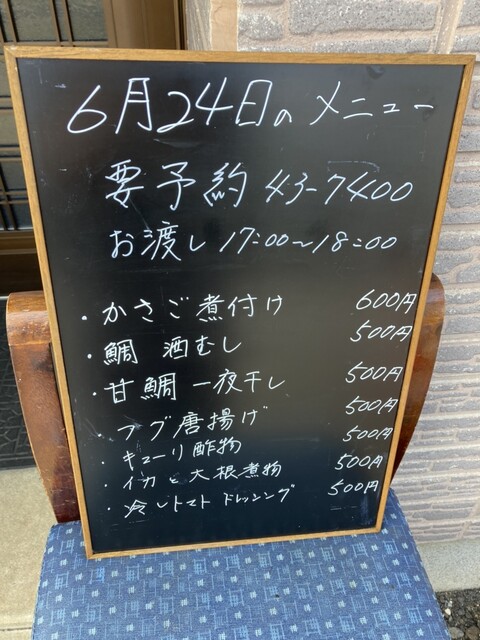 6月24日のメニュー
要予約 43-7400
お渡し 17:00〜18:00
・かさご煮付け 600円
・鯛 酒むし 500円
・甘鯛 一夜干し 500円
・フグ唐揚げ 500円
・キューリ酢物 500円
・イカと大根煮物 500円
・冷しトマト ドレッシング 500円